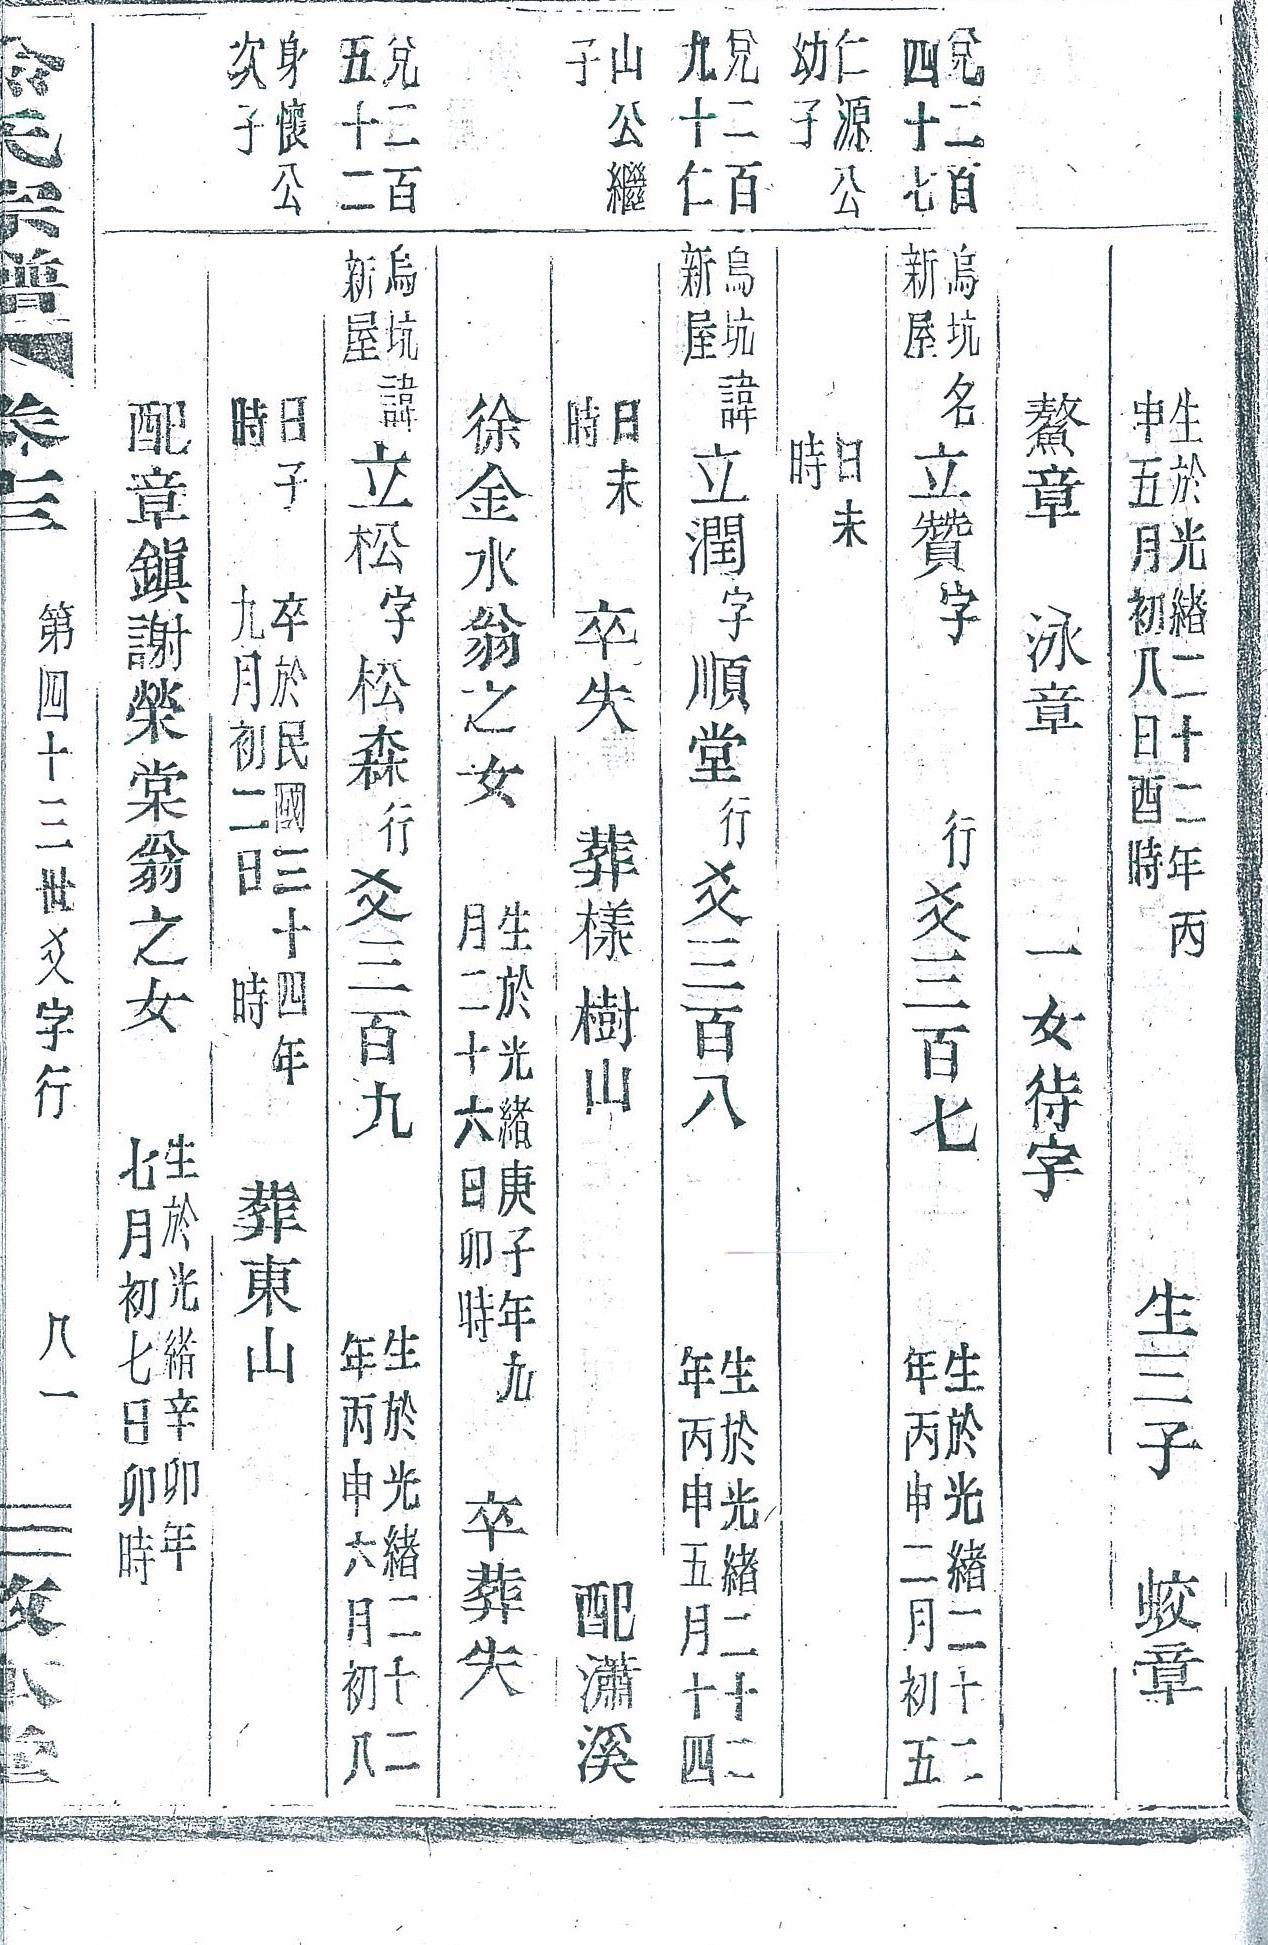 生於光緒二十二年丙
申五月初八日酉時
生三子
蛟章
鰲章
泳章
一女待字
兌二百
四十七
烏坑
新屋
名立贊字
行爻三百七
生於光緒二十二
年丙申二月初五
仁源公
幼子
日未
時
兌二百
九十仁
烏坑
新屋
諱立潤字順堂行爻三百八
生於光緒二十二
年丙申五月十四
山公繼
子
日未
時
卒失
葬樣樹山
配瀟溪
徐金水翁之女
生於光緒庚子年九
月二十六日卯時
卒葬失
兌二百
五十二
烏坑
新屋
諱立松字松森行爻三百九
生於光緒二十二
年丙申六月初八
身懷公
次子
日子
時
卒於民國三十四年
九月初二日 時
葬東山
配章鎭謝榮棠翁之女
生於光緒辛卯年
七月初七日卯時
氏宗譜
卷三
第四十三世爻字行
八一